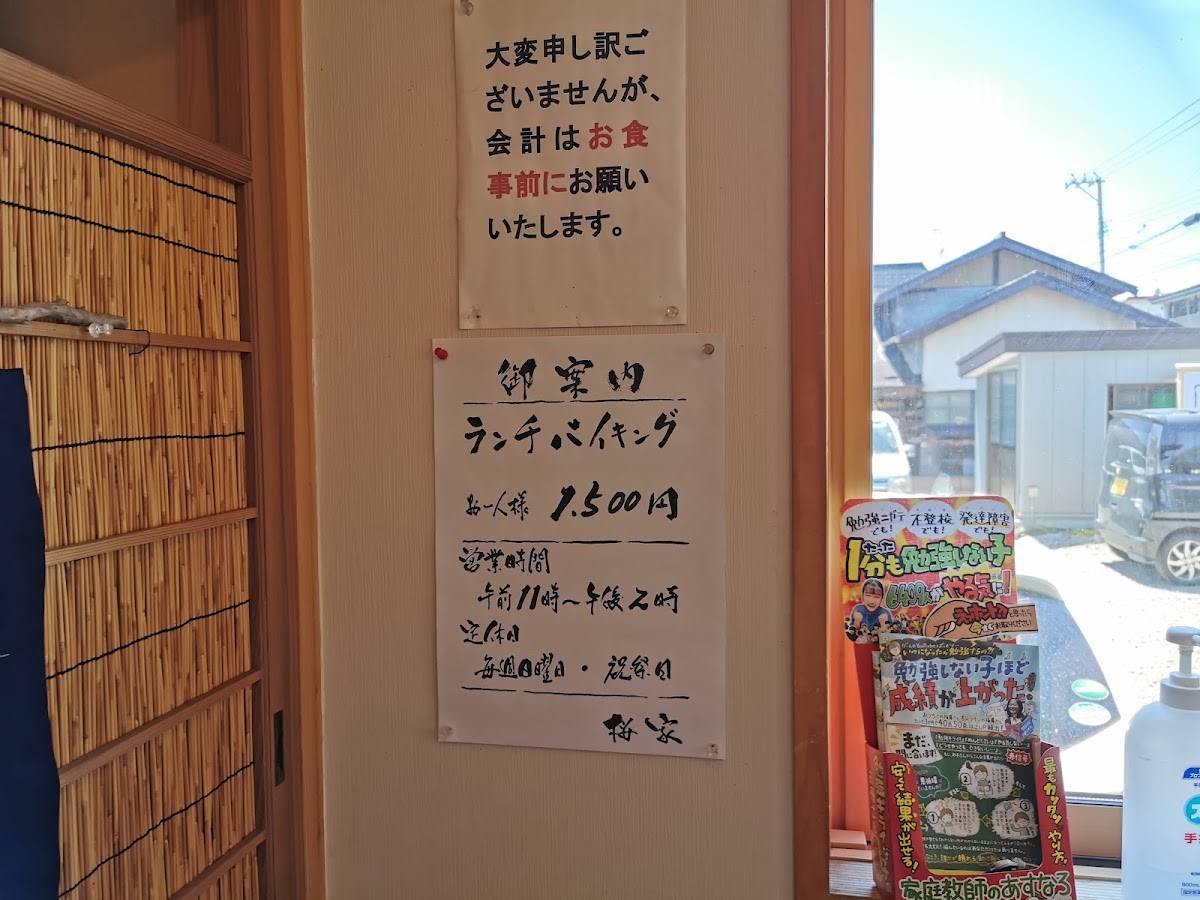 大変申し訳ご
ざいませんが、
会計はお食
事前にお願い
いたします。
御案内
ランチバイキング
お一人様 1.500円
営業時間
午前11時〜午後2時
定休日
毎週日曜日・祝祭日
桜家
勉強ニガテでも! 不登校でも! 発達障害でも!
1分も勉強しない子
やる気に!
勉強しない子ほど
成績が上がった!
まだ、
間に合います!
安くて結果が出せる!
最もカンタンなやり方。
家庭教師のあすなろ